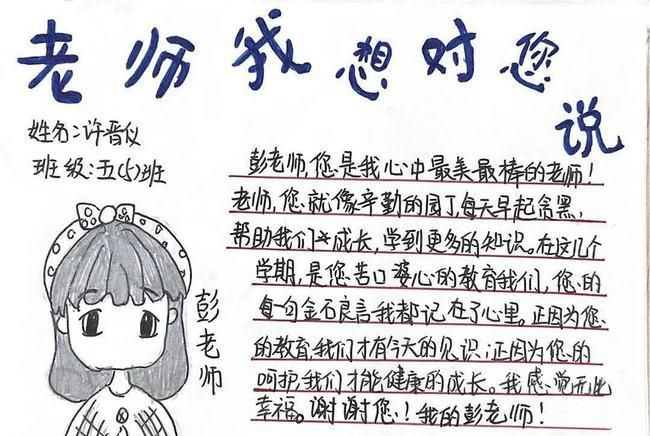 老师我想对您
说
姓名:许晋仪
班级:五(5)班
彭老师,您是我心中最美最棒的老师!
老师,您就像辛勤的园丁,每天早起贪黑,
帮助我们成长,学到更多的知识。在这几个
学期,是您苦口婆心的教育我们,您的
每一句金石良言我都记在了心里。正因为您
的教育,我们才有今天的见识;正因为您的
呵护,我们才能健康的成长。我感觉无比
幸福。谢谢您!我的彭老师!
彭老师